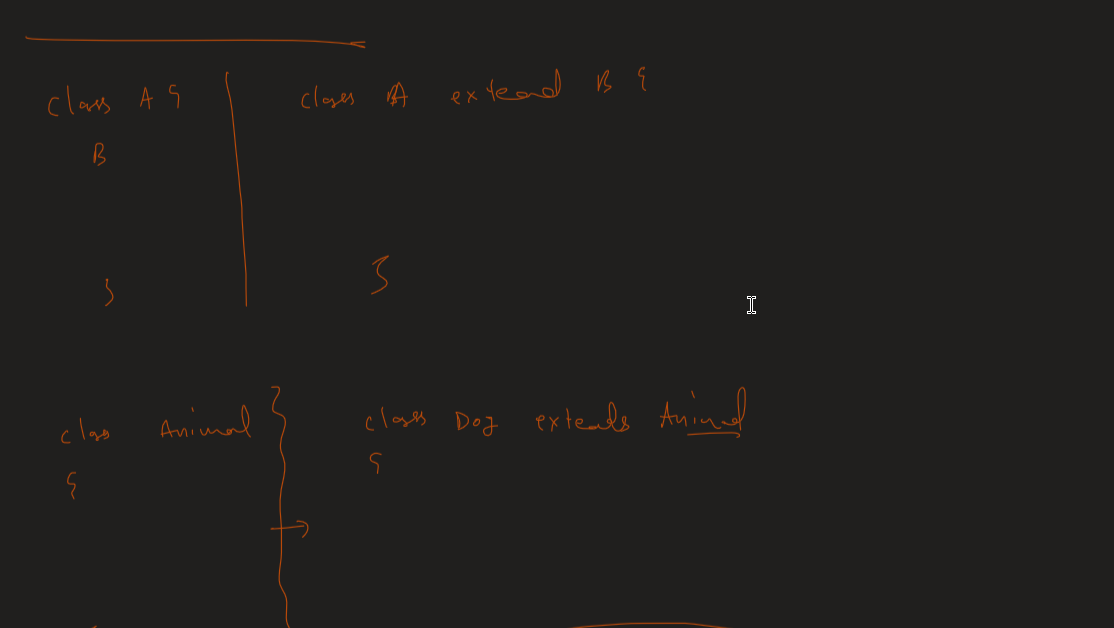 class A {
B
}
class A extend B {
}
class Animal
{
class Dog extends Animal
{